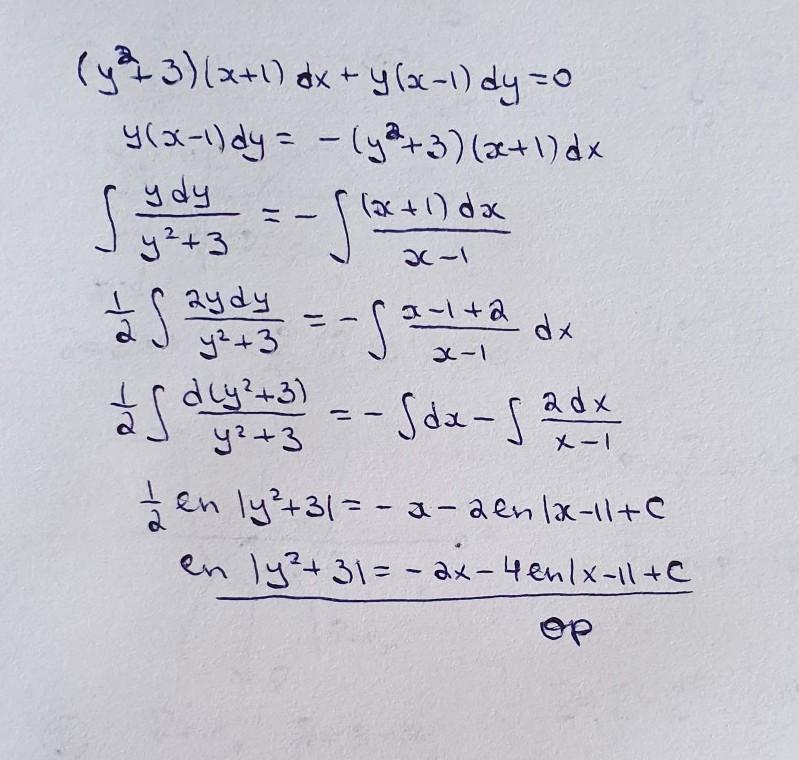 (y²+3)(x+1) dx + y(x-1) dy = 0
y(x-1) dy = - (y²+3)(x+1) dx
∫ y dy / y²+3 = - ∫ (x+1) dx / x-1
1/2 ∫ 2y dy / y²+3 = - ∫ x-1+2 / x-1 dx
1/2 ∫ d(y²+3) / y²+3 = - ∫ dx - ∫ 2 dx / x-1
1/2 ln |y²+3| = - x - 2 ln |x-1| + C
ln |y²+3| = - 2x - 4 ln |x-1| + C